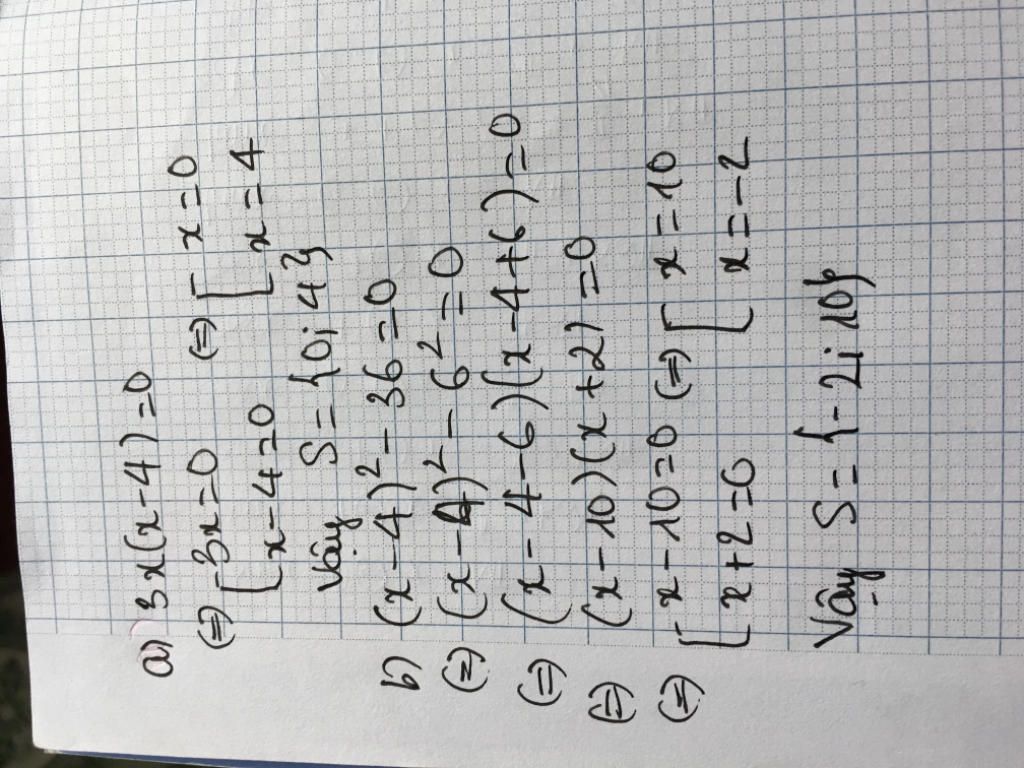 a) 3x(x-4)=0
(=) [ 3x=0 (=) [ x=0
x-4=0 x=4
Vậy S={0; 4}
b) (x-4)²-36=0
(=) (x-4)²-6²=0
(=) (x-4-6)(x-4+6)=0
(=) (x-10)(x+2)=0
(=) [ x-10=0 (=) [ x=10
x+2=0 x=-2
Vậy S={-2; 10}